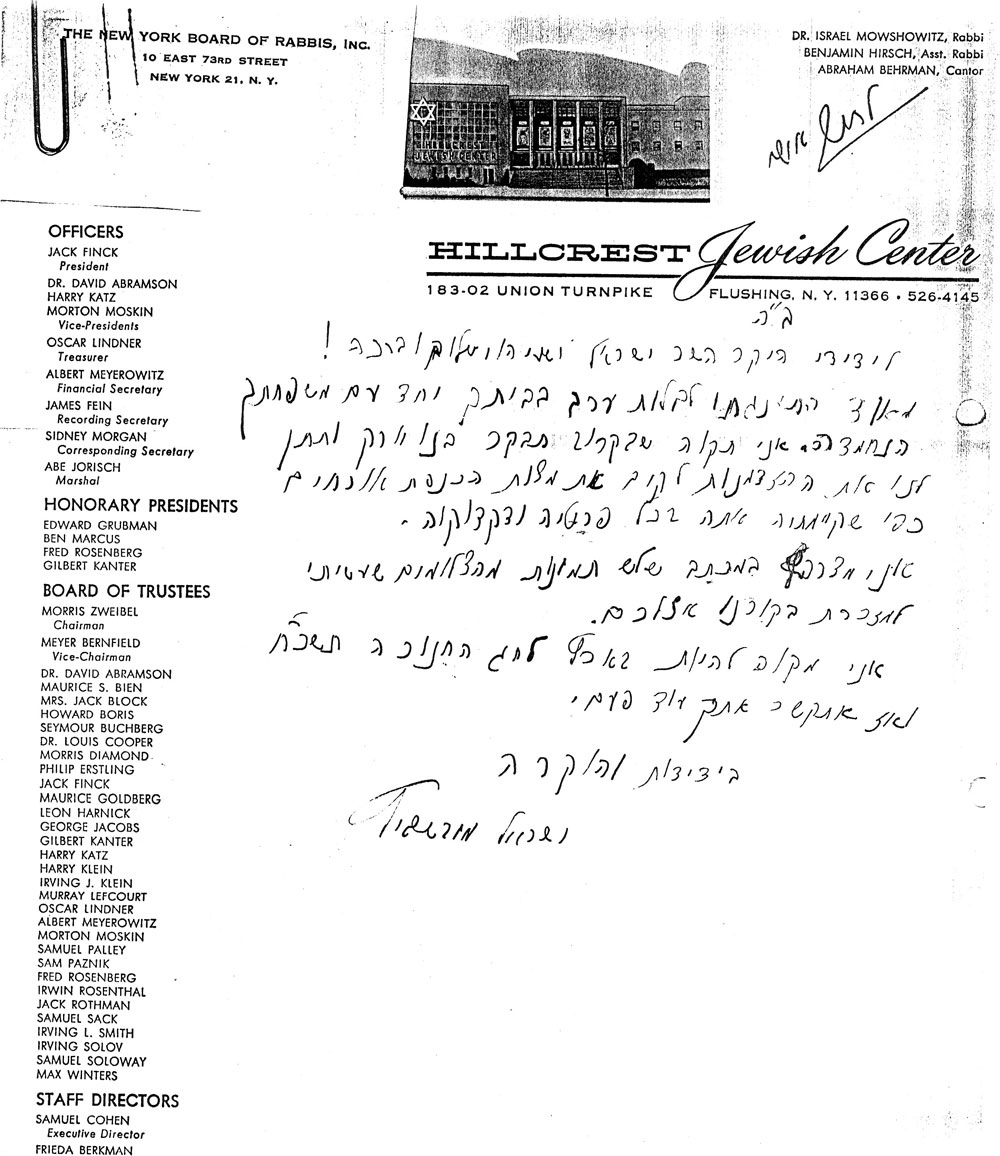 THE NEW YORK BOARD OF RABBIS, INC.
10 EAST 73RD STREET
NEW YORK 21, N. Y.
DR. ISRAEL MOWSHOWITZ, Rabbi
BENJAMIN HIRSCH, Asst. Rabbi
ABRAHAM BEHRMAN, Cantor
אישי
HILLCREST
JEWISH CENTER
HILLCREST Jewish Center
183-02 UNION TURNPIKE FLUSHING, N. Y. 11366 • 526-4145
OFFICERS
JACK FINCK
President
DR. DAVID ABRAMSON
HARRY KATZ
MORTON MOSKIN
Vice-Presidents
OSCAR LINDNER
Treasurer
ALBERT MEYEROWITZ
Financial Secretary
JAMES FEIN
Recording Secretary
SIDNEY MORGAN
Corresponding Secretary
ABE JORISCH
Marshal
HONORARY PRESIDENTS
EDWARD GRUBMAN
BEN MARCUS
FRED ROSENBERG
GILBERT KANTER
BOARD OF TRUSTEES
MORRIS ZWEIBEL
Chairman
MEYER BERNFIELD
Vice-Chairman
DR. DAVID ABRAMSON
MAURICE S. BIEN
MRS. JACK BLOCK
HOWARD BORIS
SEYMOUR BUCHBERG
DR. LOUIS COOPER
MORRIS DIAMOND
PHILIP ERSTLING
JACK FINCK
MAURICE GOLDBERG
LEON HARNICK
GEORGE JACOBS
GILBERT KANTER
HARRY KATZ
HARRY KLEIN
IRVING J. KLEIN
MURRAY LEFCOURT
OSCAR LINDNER
ALBERT MEYEROWITZ
MORTON MOSKIN
SAMUEL PALLEY
SAM PAZNIK
FRED ROSENBERG
IRWIN ROSENTHAL
JACK ROTHMAN
SAMUEL SACK
IRVING L. SMITH
IRVING SOLOV
SAMUEL SOLOWAY
MAX WINTERS
STAFF DIRECTORS
SAMUEL COHEN
Executive Director
FRIEDA BERKMAN
ב"ה
לידידי היקר השר ישראל ישעיהו שלום וברכה!
מאוד התענגתי לבלות ערב בביתך יחד עם משפחתך
הנחמדה. אני תקוה שבקרוב תבקר בנו יארק ותתן
לנו את ההזדמנות לקים את מצות הכנסת אורחים
כפי שקיימתיה אתה בכל פרטיה ודקדוקיה.
אני מצרף במכתב שלש תמונות מהצלומים שעשיתי
למזכרת בקורנו אצלכם.
אני מקוה להיות בארץ לחג החנוכה תשכ"ח
ואז אתקשר אתך עוד פעם.
בידידות והוקרה
ישראל מובשוביץ